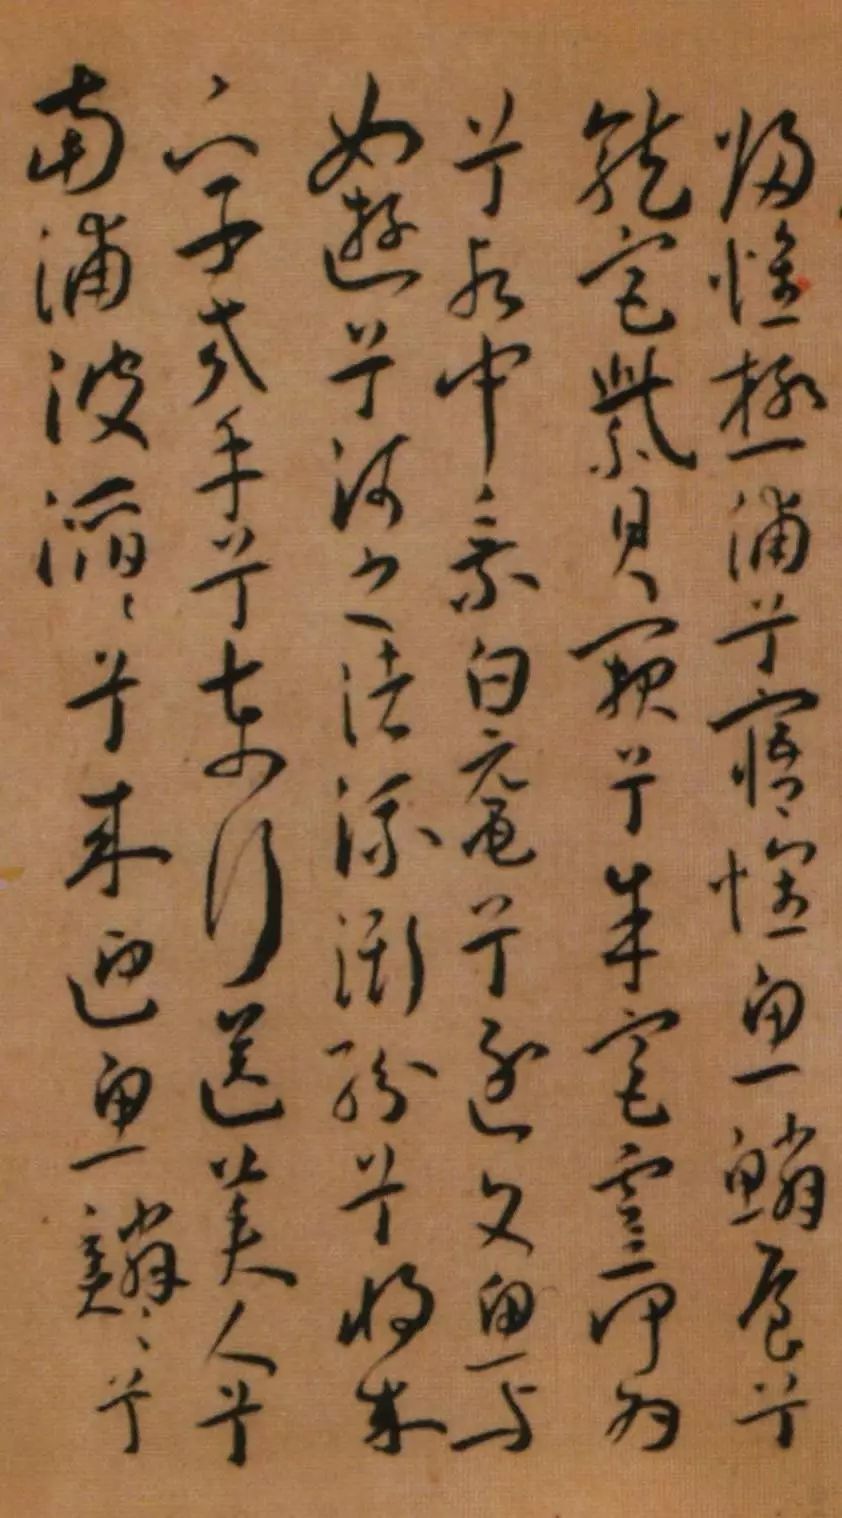 歸惟極浦兮寤懷魚鱗屋兮
龍堂紫貝闕兮朱宮靈何為
兮水中乘白黿兮逐文魚與
女遊兮河之渚流澌紛兮將來
下子交手兮東行送美人兮
南浦波滔〻兮來迎魚鱗〻兮